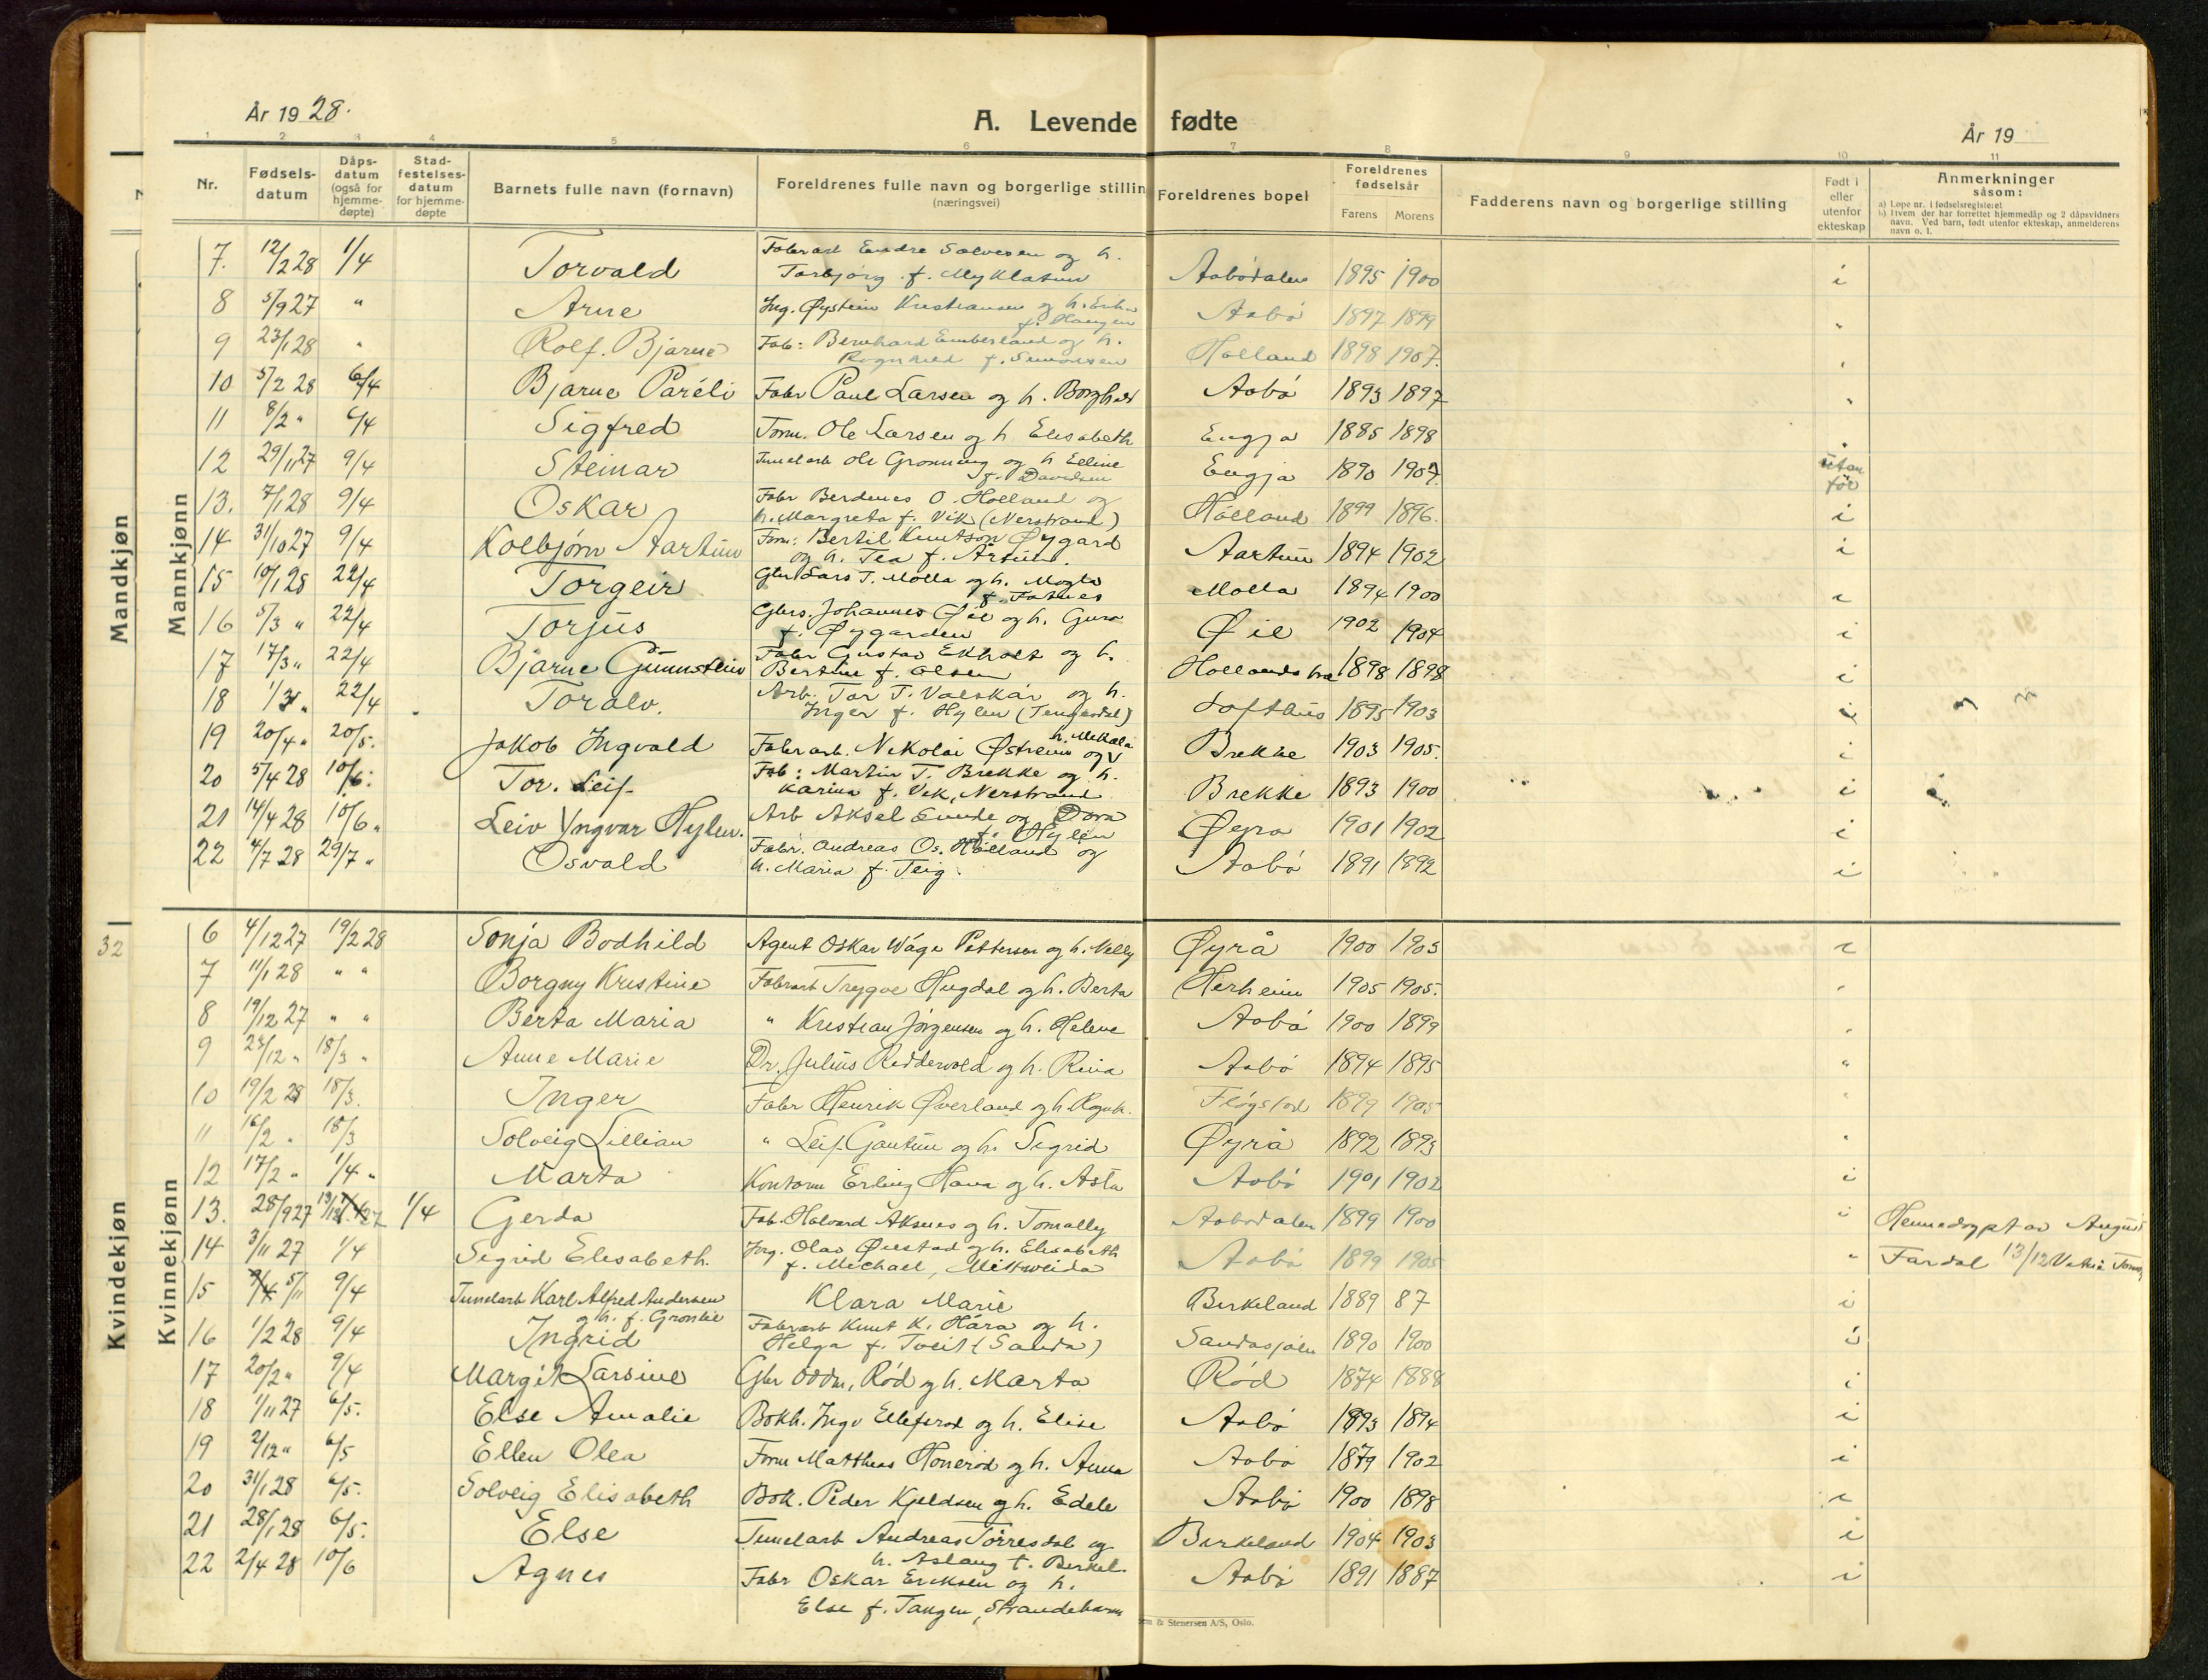 År 19 28.
A. Levende fødte
År 19
1 2 3 4 5 6 7 8 9 10 11
Nr. | Fødsels-datum | Dåps-datum (også for hjemme-døpte) | Stad-festelses-datum for hjemme-døpte | Barnets fulle navn (fornavn) | Foreldrenes fulle navn og borgerlige stillin (næringsvei) | Foreldrenes bopel | Foreldrenes fødselsår Farens Morens | Fadderens navn og borgerlige stilling | Født i eller utenfor ekteskap | Anmerkninger såsom: a) Løpe nr. i fødselsregisteret b) Hvem der har forrettet hjemmedåp og 2 dåpsvidners navn. Ved barn, født utenfor ekteskap, anmelderens navn o. l.
Mandkjøn
Mannkjønn
7. 12/2 28 1/4 Torvald Fabrarb Endre Salvesen og h. Aabødalen 1895 1900 i
Torbjørg f. Myklatun
8 5/9 27 " Arne Ing. Øystein Kristiansen og h. Aabø 1897 1899 "
f. Haugen
9 23/1 28 " Rolf. Bjarne Fab: Bernhard Emberland og h. Hølland 1898 1907. "
Ragnhild f. Simonsen
10 5/2 28 6/4 Bjarne Paréli Fabr Paul Larsen og h. Borghild Aabø 1893 1897 "
11 8/2 " 6/4 Sigfred Form. Ole Larsen og h Elisabeth Engja 1885 1898 "
12 29/11 27 9/4 Steinar Tunelarb Ole Grønning og h Elline Engja 1890 1907. utan for
f. Davidsen
13. 7/1 28 9/4 Oskar Fabr Berdines O. Hølland og Hølland 1899 1896. i
h. Margreta f. Vik (Nerstrand)
14 31/10 27 9/4 Kolbjørn Aartun Form: Bertil Knutson Øygard Aartun 1894 1902 i
og h. Tea f. Artun.
15 10/1 28 22/4 Torgeir Gbr Lars T. Molla og h. Magla Molla 1894 1900 i
f. Fatnes
16 5/3 " 22/4 Torjus Gbrs. Johannes Øie og h. Guro Øie 1902 1904 i
f. Øygarden
17 17/3 " 22/4 Bjarne Gunnstein Fabr Gustav Ekholt og h. 1898 1898 i
Bertine f. Olsen
18 1/3 " 22/4 Toralv. Arb. Tor T. Valskår og h. Lofthus 1895 1903 i
Inger f. Hylen (Tengesdal)
19 20/4 " 20/5. Jakob Ingvald Fabrarb. Nikolai Østreim og h. Mikala Brekke 1903 1905. i
20 5/4 28 10/6. Tor. Leif Fab: Martin T. Brekke og h. Brekke 1893 1900 i
Karina f. Vik, Nerstrand
21 14/4 28 10/6 " Leiv Yngvar Hylen. Arb Aksel Lunde og Dora Øyra 1901 1902 i
f. Hylen
22 4/7 28 29/7 " Osvald Fabr. Andreas Os. Hølland og Aabø 1891 1892 i
h. Maria f. Teig.
32
Kvindekjøn
Kvinnekjønn
6 4/12 27 19/2 28 Sonja Bodhild Agent Oskar Wåge Pettersen og h. Nelly Øyrå 1900 1903 i
7 11/1 28 " " Borgny Kristine Fabrarb Trygve Hugdal og h. Berta Herheim 1905 1905. "
8 19/12 27 " " Berta Maria " Kristian Jørgensen og h. Helene Aabø 1900 1899 "
9 23/12 " 18/3 " Anne Marie Dr. Julius Riddervold og h. Rina Aabø 1894 1895 "
10 19/2 28 18/3. Inger Fabr Henrik Øverland og h. Ragnh. Fløgstad 1899 1905 "
11 16/2 " 18/3 Solveig Lillian " Leif Gautun og h. Sigrid Øyrå 1892 1893 "
12 17/2 " 1/4 " Marta Kontorm Erling Hava og h. Asta Aabø 1901 1902 i
13. 28/9 27 13/12 27 1/4 Gerda Fab. Halvard Aksnes og h. Tomally Aabødalen 1899 1900 i Hemedøypt av August
14 3/11 27 1/4 Sigrid Elisabeth. Ing. Olav Øiestad og h. Elisabeth Aabø 1899 1905 " Fardal 13/12
f. Michael, Mittweida
15 5/11 9/4 Tunelarb Karl Alfred Andersen Klara Marie Birkeland 1889 87 i
og h. f. Grønlie
16 1/2 28 9/4 Ingrid Fabrarb Knut K. Håra og h. Sandasjøen 1890 1900 i
Helga f. Tveit (Sauda)
17 20/2 " 9/4 Margit Larsine Gbr Oddm, Rød og h. Marta Rød 1874 1888 i
18 1/11 27 6/5. Else Amalie Bokh. Ingv Ellefsrød og h. Elise Aabø 1893 1894 i
19 2/12 " 6/5 Ellen Olea Form Matthias Hønerød og h. Anna Aabø 1879 1902 i
20 31/1 28 6/5. Solveig Elisabeth Bok. Peder Kjeldsen og h. Edele Aabø 1900 1898 i
21 28/1 28 6/5. Else Tunelarb Andreas Tørresdal og Birkeland 1904 1903 i
h. Aslaug f. Birkel.
22 2/4 28 10/6 Agnes Fabr Oskar Eriksen og h. Aabø 1891 1887 i
Else f. Tangen, Strandebarm
& Stenersen A/S, Oslo.